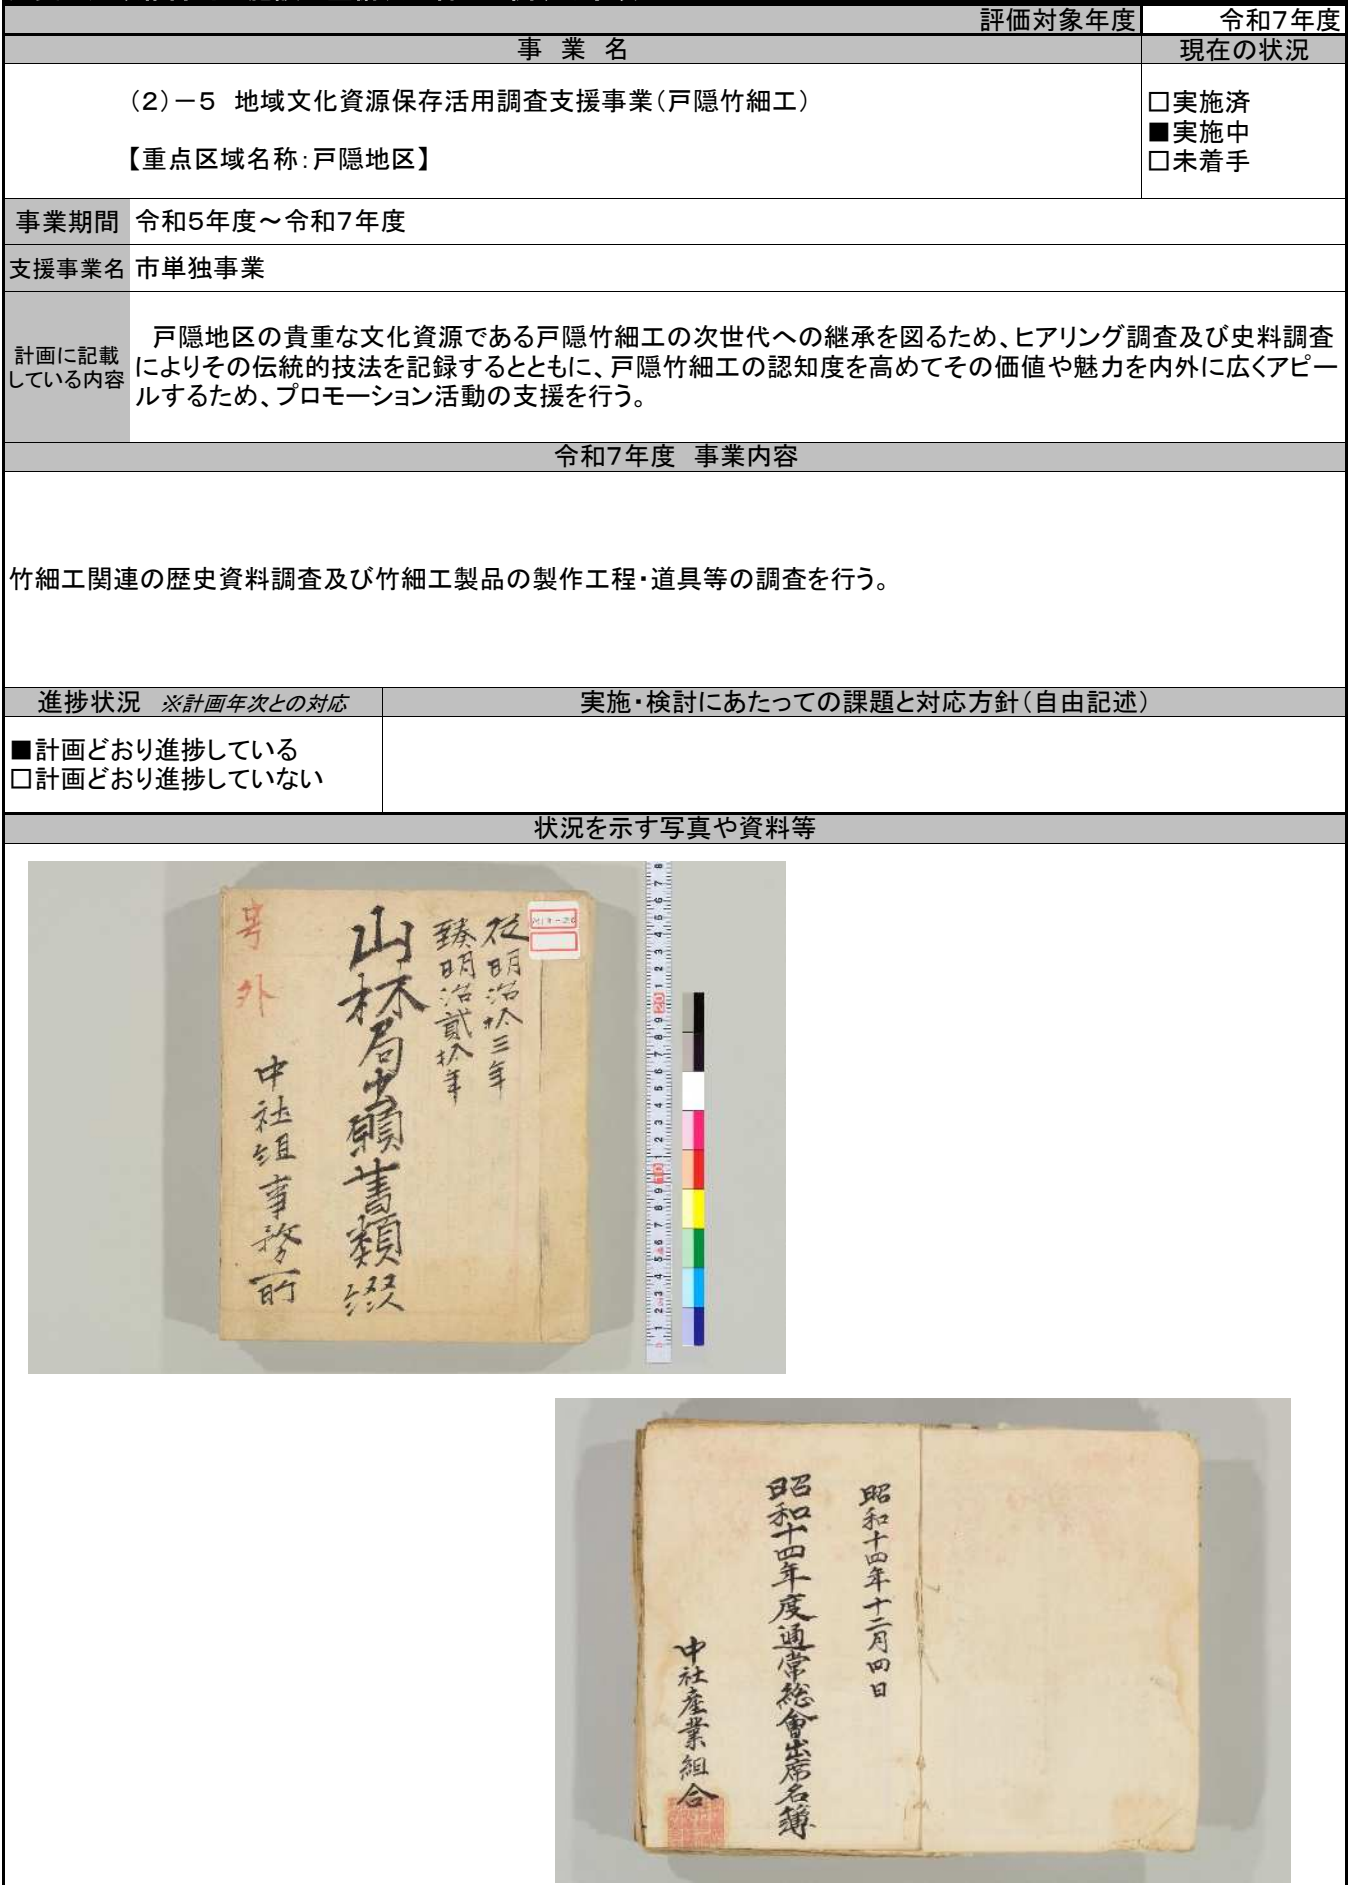 評価対象年度
令和７年度
事 業 名
現在の状況
（２）－５ 地域文化資源保存活用調査支援事業（戸隠竹細工）
【重点区域名称：戸隠地区】
□実施済
■実施中
□未着手
事業期間
令和５年度～令和７年度
支援事業名
市単独事業
計画に記載
している内容
戸隠地区の貴重な文化資源である戸隠竹細工の次世代への継承を図るため、ヒアリング調査及び史料調査
によりその伝統的技法を記録するとともに、戸隠竹細工の認知度を高めてその価値や魅力を内外に広くアピー
ルするため、プロモーション活動の支援を行う。
令和７年度 事業内容
竹細工関連の歴史資料調査及び竹細工製品の製作工程・道具等の調査を行う。
進捗状況 ※計画年次との対応
実施・検討にあたっての課題と対応方針（自由記述）
■計画どおり進捗している
□計画どおり進捗していない
状況を示す写真や資料等
従明治拾三年
臻明治貳拾年
山林局出願書類綴
号外
中社組事務所
昭和十四年十二月四日
昭和十四年度通常総會出席名簿
中社産業組合